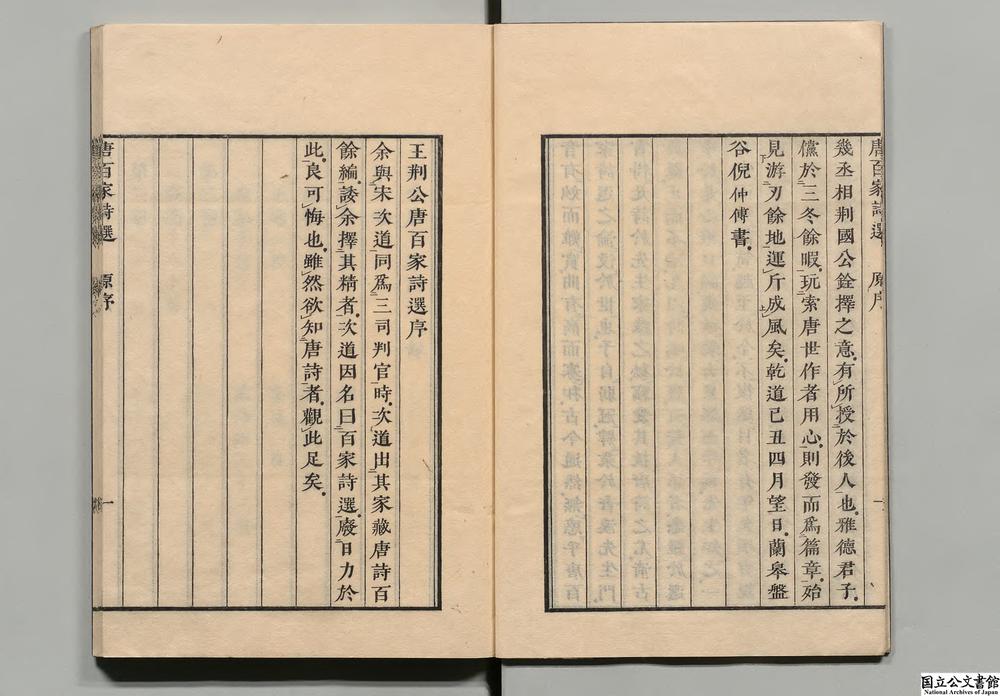 唐百家詩選 原序 一
幾丞相荆國公銓擇之意有所授於後人也雅德君子
儻於三冬餘暇玩索唐世作者用心則發而爲篇章殆
見游刃餘地運斤成風矣乾道己丑四月望日蘭皋盤
谷倪仲傅書
王荆公唐百家詩選序
余與宋次道同爲三司判官時次道出其家藏唐詩百
餘編諉余擇其精者次道因名曰百家詩選廢日力於
此良可悔也雖然欲知唐詩者觀此足矣
唐百家詩選 原序 一
国立公文書館
National Archives of Japan